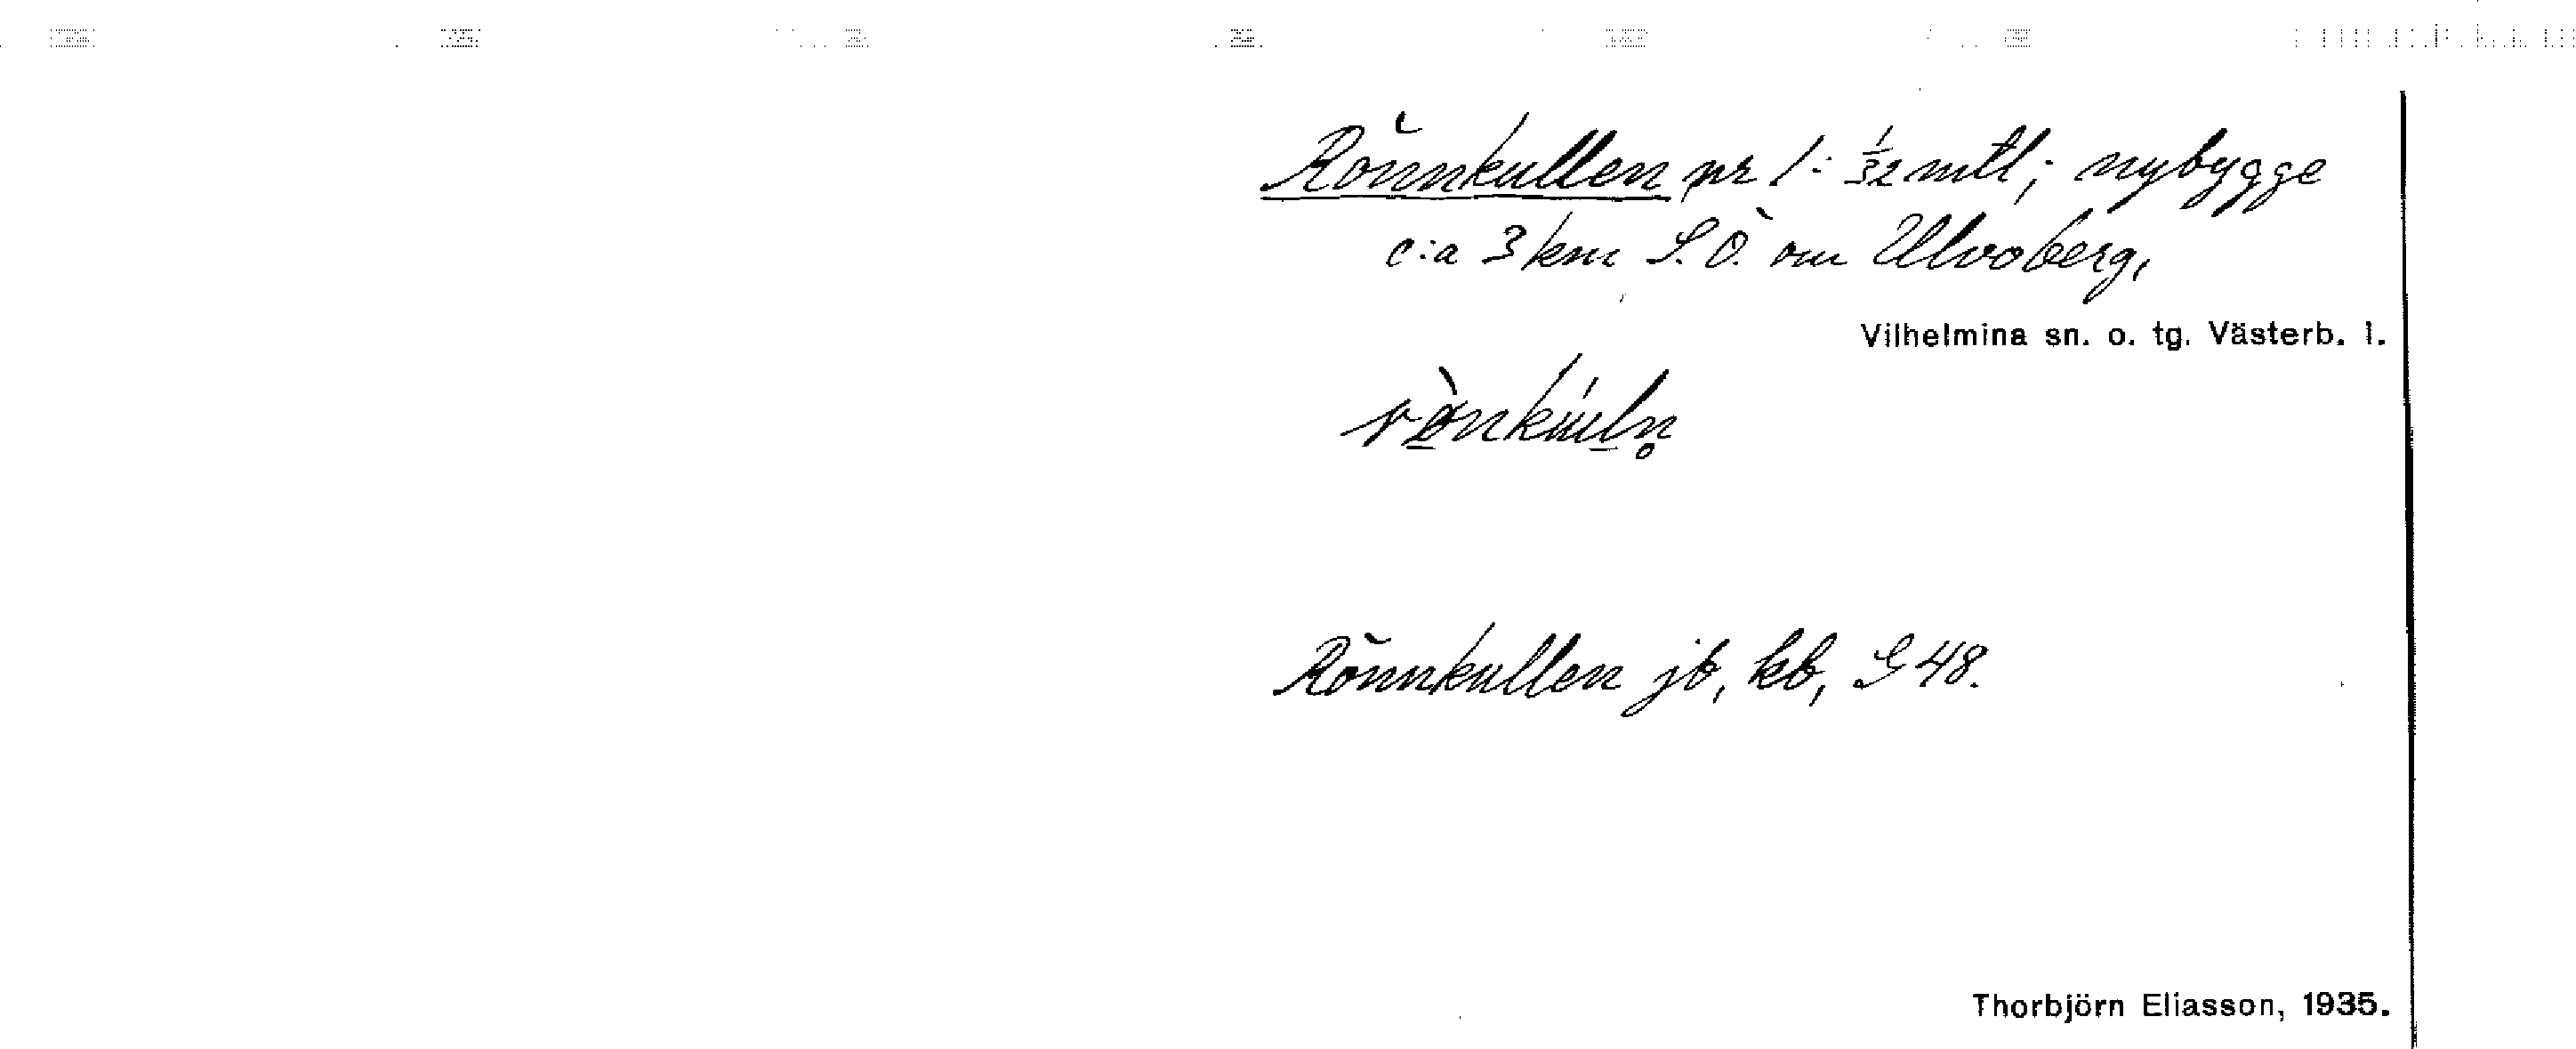 Rönnkullen nr 1: 1/32 mtl; nybygge
c:a 3 km S.Ö. om Ulvoberg,
Vilhelmina sn. o. tg. Västerb. l.
Rönnkullen jb, kb, G 48.
Thorbjörn Eliasson, 1935.